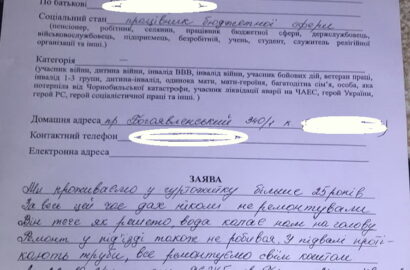 По батькові
Соціальний стан працівник бюджетної сфери
(пенсіонер, робітник, селянин, працівник бюджетної сфери, держслужбовець,
військовослужбовець, підприємець, безробітній, учень, студент, служитель релігійної
організації та інш.)
Категорія —
(учасник війни, дитина війни, інвалід ВВВ, інвалід війни, учасник бойових дій, ветеран праці,
інвалід 1-3 групи, дитина-інвалід, одинока мати, мати-героїня, багатодітна сім'я, особа, яка
потерпіла від Чорнобильської катастрофи, учасник ліквідації аварії на ЧАЕС, герой України,
герой РС, герой соціалістичної праці та інше.)
Домашня адреса пр. Богоявленський 340/1 к
Контактний телефон
Електронна адреса
ЗАЯВА
Ми проживаємо у гуртожитку більше 25 років
За весь цей час дах ніколи не ремонтували
Він тече як решето, вода капає нам на голову
Ремонт у під'їзді також не робився. У підвалі проті-
кають труби, все ремонтуємо своїм коштом